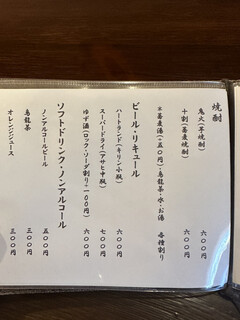 焼酎
鬼火(芋焼酎) 六〇〇円
十割(蕎麦焼酎) 六〇〇円
※蕎麦湯(+五〇円)・烏龍茶・水・お湯 各種割り
ビール・リキュール
ハートランド(キリン小瓶) 六〇〇円
スーパードライ(アサヒ中瓶) 七〇〇円
ゆず酒(ロック・ソーダ割り+一〇〇円) 六〇〇円
ソフトドリンク・ノンアルコール
ノンアルコールビール 五〇〇円
烏龍茶 三〇〇円
オレンジジュース 三〇〇円